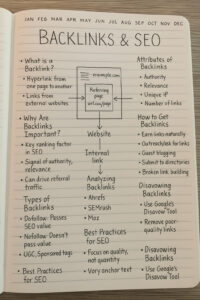 JAN FEB MAR APR MAY JUN JUL AUG SEP OCT NOV DEC
BACKLINKS & SEO
• What is a
Backlink?
• Hyperlink from
one page to another
• Links from
external websites
• Why Are
Backlinks
Important?
• Key ranking factor
in SEO
• Signal of authority,
relevance
• Can drive referral
traffic
Types of
Backlinks
• Dofollow: Passes
SEO value
• Nofollow: Doesn't
pass value
• UGC, Sponsored tags
• Best Practices
for SEO
example.com
Referring
page
Website
Internal
link
Analyzing
Backlinks
• Ahrefs
• SEMrush
• Moz
Best Practices
for SEO
• Focus on quality,
not quantity
• Vary anchor text
Attributes of
Backlinks
• Authority
• Relevance
• Unique
• Number of links
How to Get
Backlinks
• Earn links naturally
• Outreach/ask for links
• Guest blogging
• Submit to directories
• Broken link building
Disavowing
Backlinks
• Use Google's
Disavow Tool
• Remove poor-
quality links
• Disavowing
Backlinks
• Use Google's
Disavow Tool